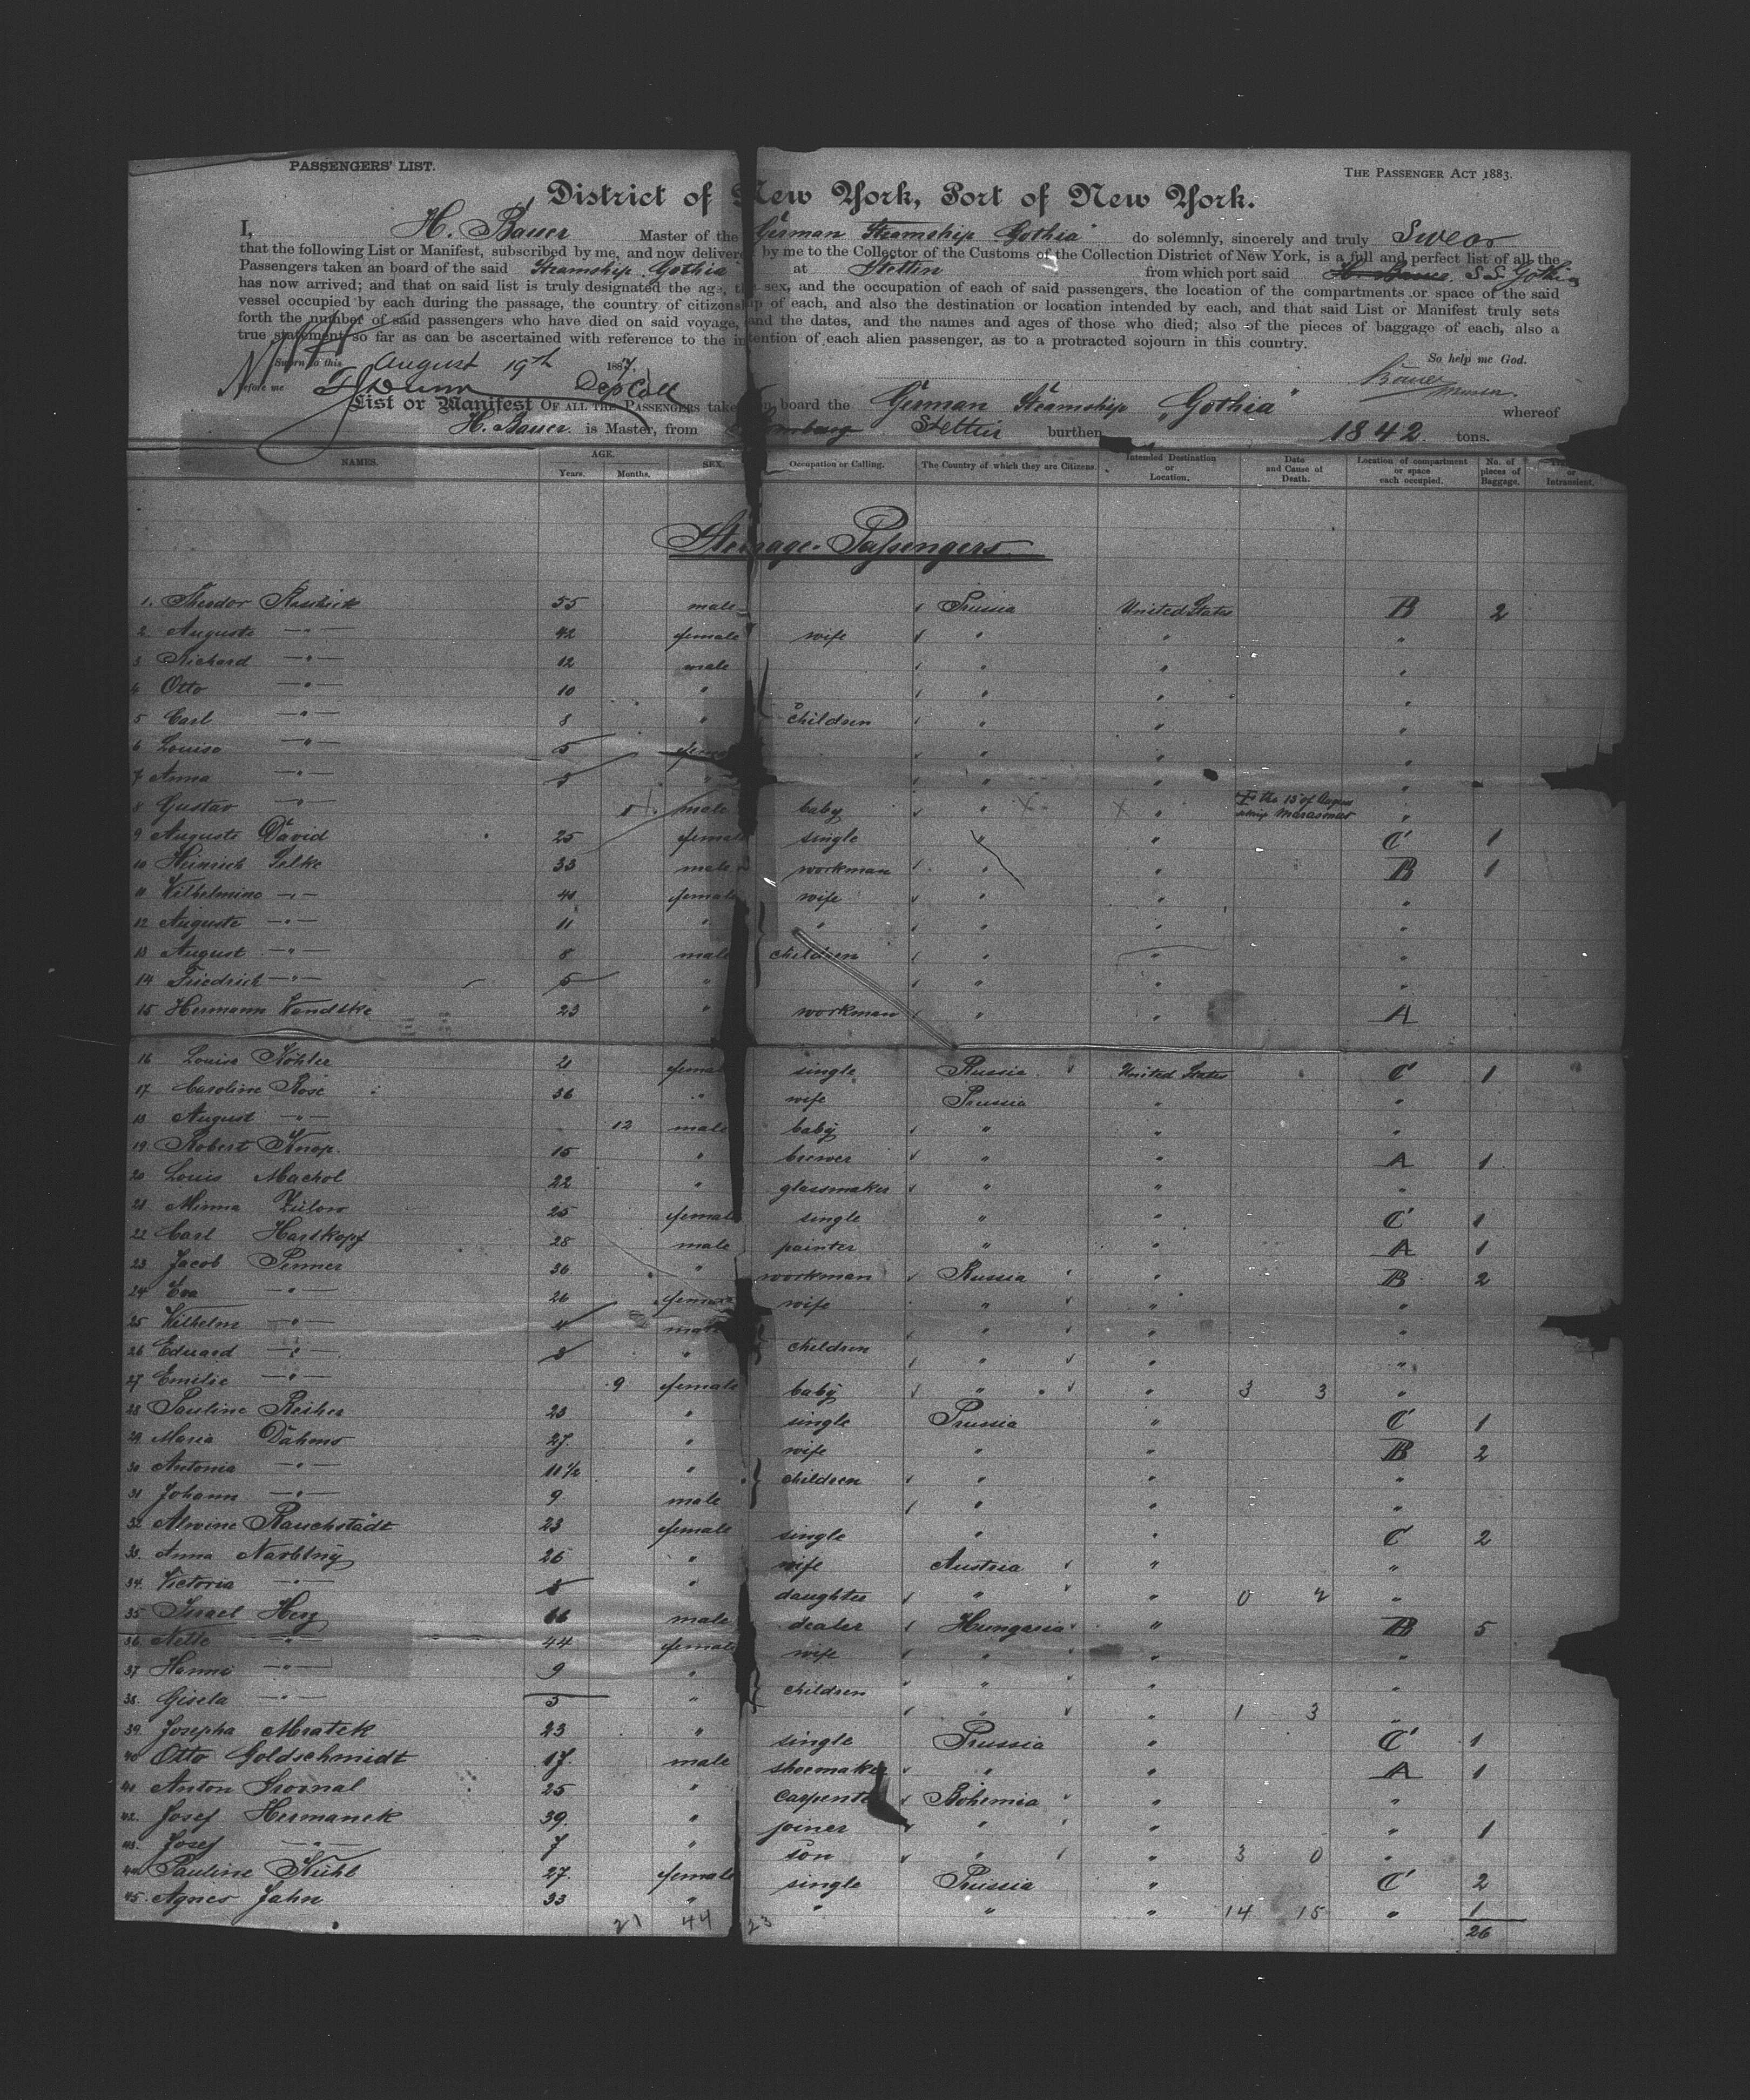 PASSENGERS' LIST.
THE PASSENGER ACT 1883.
District of New York, Port of New York.
I, H. Bauer Master of the German Steamship Gothia" do solemnly, sincerely and truly Swear
that the following List or Manifest, subscribed by me, and now delivered by me to the Collector of the Customs of the Collection District of New York, is a full and perfect list of all the
Passengers taken an board of the said Steamship Gothia at Stettin from which port said H. Bauer. S.S. Gothia
has now arrived; and that on said list is truly designated the age, the sex, and the occupation of each of said passengers, the location of the compartments or space of the said
vessel occupied by each during the passage, the country of citizenship of each, and also the destination or location intended by each, and that said List or Manifest truly sets
forth the number of said passengers who have died on said voyage, and the dates, and the names and ages of those who died; also of the pieces of baggage of each, also a
true statement so far as can be ascertained with reference to the intention of each alien passenger, as to a protracted sojourn in this country.
Sworn to this August 19th 1887. So help me God.
Before me Dep Coll Bauer
List or Manifest OF ALL THE PASSENGERS taken on board the German Steamship "Gothia" whereof
H. Bauer is Master, from Stettin burthen 1842 tons.
NAMES. AGE. Years. Months. SEX. Occupation or Calling. The Country of which they are Citizens. Intended Destination or Location. Date and Cause of Death. Location of compartment or space each occupied. No. of pieces of Baggage. or Intransient.
Steerage-Passengers
1. Theodor 55 male Prussia United States B 2
2 Auguste —"— 42 female wife " " "
3 Richard —"— 12 male " " "
4 Otto —"— 10 " " " "
5 Carl —"— 8 " children " " "
6 Louise —"— 5 female " " "
7 Anna —"— " " " "
8 Gustav —"— 1 male baby " " the 15 of August Marasmus "
9 Auguste David 25 female single " " C 1
10 Heinrich Gelke 33 male workman " " B 1
11 Wilhelmine —"— 40 female wife " " "
12 Auguste —"— 11 " " " " "
13 August —"— 8 male children " " "
14 Friedrich —"— 5 " " " "
15 Hermann Wandtke 23 " workman " " A
16 Louise Köhler 21 female single Russia United States C 1
17 Caroline Rose 36 " wife Prussia " "
18 August —"— 12 male baby " " "
19 Robert Knop. 15 " brewer " " A 1
20 Louis Machol 22 " glassmaker " " "
21 Minna Zülow 25 female single " " C 1
22 Carl Hartkopf 28 male painter " " A 1
23 Jacob Penner 36 " workman Russia " B 2
24 Eva —"— 26 female wife " " "
25 Wilhelm —"— 4 male " " "
26 Eduard —"— 3 " children " " "
27 Emilie —"— 9 female baby " " 3 3 "
28 Pauline Reiher 23 " single Prussia " C 1
29 Maria Dahms 27. " wife " " B 2
30 Antonia —"— 11½ " children " " "
31 Johann —"— 9 male " " "
32 Alwine Rauchstädt 23 female single " " C 2
33. Anna 26 " wife Austria " "
34. Victoria —"— " daughter " " 0 2 "
35 Israel Herz male dealer Hungaria " B 5
36. Nette " 44 female wife " " "
37 Hanni —"— 9 " children " " "
38. Gisela —"— 3 " " " 1 3 "
39. Josepha Mratek 23 " single Prussia " C 1
40 Otto Goldschmidt 17. male shoemaker " " A 1
41 Anton 25 " carpenter Bohemia " "
42. Josef Hermanek 39. " joiner " " " 1
43. Josef —"— 7 " son " " 3 0 "
44 Pauline Kühl 27. female single Prussia " C 2
45. Agnes Jahn 33 " " " " 14 15 " 1
21 44 23 26